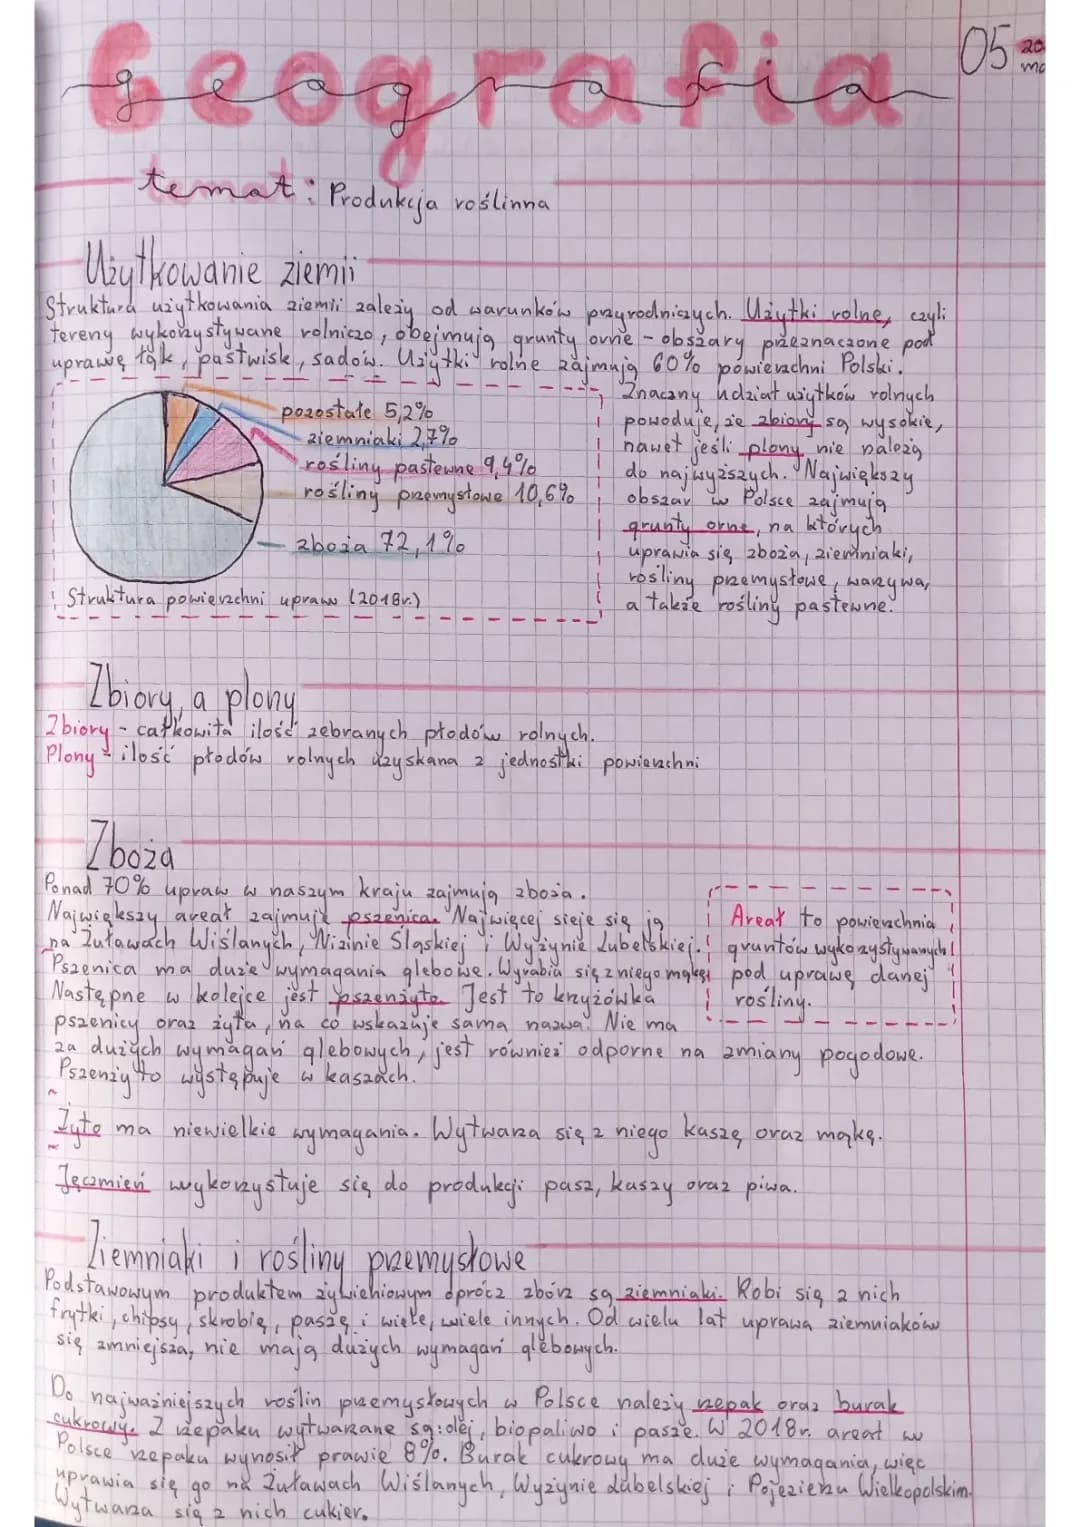 Geografia
geografia
05
20
ma
temat: Produkcja roślinna
Użytkowanie ziemii
Struktura użytkowania ziemii zależy od warunków przyrodniczych. Użytki rolne, czyli
tereny wykorzystywane rolniczo, obejmują grunty orne - obszary przeznaczone pod
uprawę łąk, pastwisk, sadów. Użytki rolne zajmują 60% powierzchni Polski.
pozostałe 5,2%
ziemniaki 2,7%
rośliny pastewne 9,4%
rośliny przemysłowe 10,6%
zboża 72,1%
Struktura powierzchni upraw (2018r.)
Znaczny udział użytków rolnych
powoduje, że zbiory są wysokie,
nawet jeśli plony nie należą
do najwyższych. Największy
obszar w Polsce zajmują
grunty orne, na których
uprawia się zboża, ziemniaki,
rośliny przemysłowe, warzywa,
a także rośliny pastewne.
Zbiory, a plony
Zbiory - całkowita ilość zebranych płodów rolnych.
Plony - ilość płodów rolnych uzyskana z jednostki powierzchni
Zboża
Ponad 70% upraw w naszym kraju zajmują zboża.
Największy areał zajmuje pszenica. Najwięcej sieje się ją
na Żuławach Wiślanych, Nizinie Śląskiej i Wyżynie Lubelskiej.
Pszenica ma duże wymagania glebowe. Wyrabia się z niego mąkę.
Następne w kolejce jest pszenżyto. Jest to krzyżówka
pszenicy oraz żyta, na co wskazuje sama nazwa. Nie ma
za dużych wymagań glebowych, jest również odporne na zmiany pogodowe.
Pszenżyto występuje w kaszach.
Areał to powierzchnia
gruntów wykorzystywanych
pod uprawę danej
rośliny.
Żyto ma niewielkie wymagania. Wytwarza się z niego kaszę oraz mąkę.
Jęczmień wykorzystuje się do produkcji pasz, kaszy oraz piwa.
Ziemniaki i rośliny przemysłowe
Podstawowym produktem żywieniowym oprócz zbórz są ziemniaki. Robi się z nich
frytki, chipsy, skrobię, paszę i wiele, wiele innych. Od wielu lat uprawa ziemniaków
się zmniejsza, nie mają dużych wymagań glebowych.
Do najważniejszych roślin przemysłowych w Polsce należy rzepak oraz burak
cukrowy. Z rzepaku wytwarzane są: olej, biopaliwo i pasze. W 2018r. areał w
Polsce rzepaku wynosił prawie 8%. Burak cukrowy ma duże wymagania, więc
uprawia się go na Żuławach Wiślanych, Wyżynie Lubelskiej i Pojezierzu Wielkopolskim.
Wytwarza się z nich cukier.